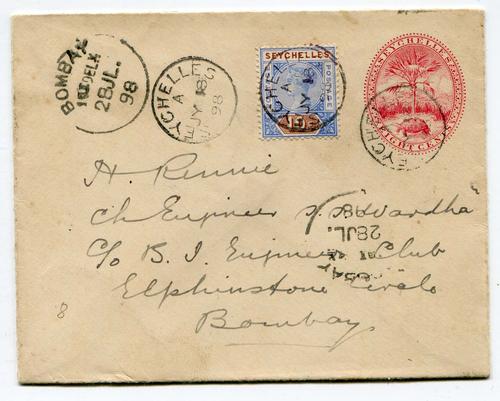 BOMBAY
1st DELY.
28 JL.
98
SEYCHELLES
A
JY 18
98
SEYCHELLES
POSTAGE
SEYCHELLES
A
JY 18
98
SEYCHELLES
EIGHT CENTS
SEYCHELLES
H. Rennie
Ch Engineer S.S. Wardha
C/o B. I. Engineers Club
Elphinstone Circle
Bombay
BOMBAY
28 JL.
98
8